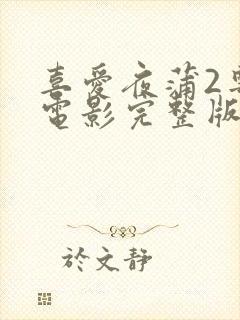 喜愛夜蒲2粵
電影完整版
於文靜